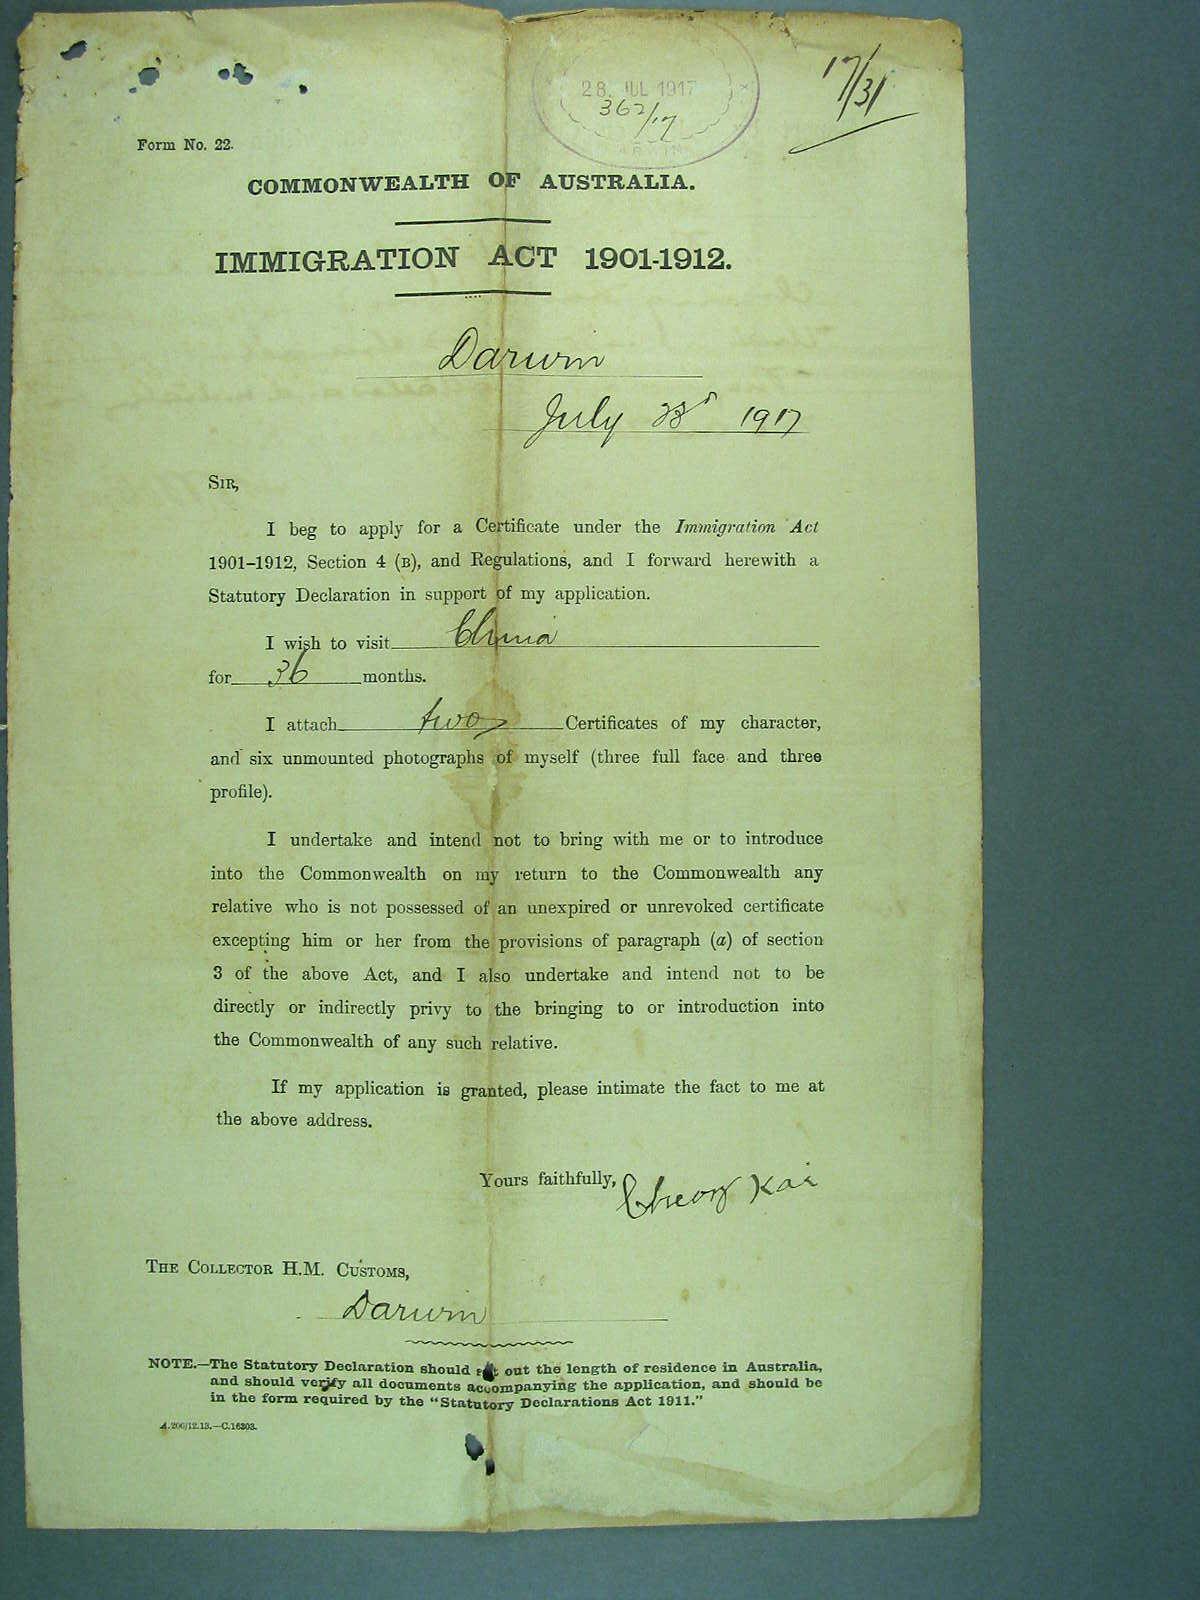 17/31
28. JUL 1917
362/17
DARWIN
Form No. 22.
COMMONWEALTH OF AUSTRALIA.
IMMIGRATION ACT 1901-1912.
Darwin
July 28 1917
SIR,
I beg to apply for a Certificate under the Immigration Act
1901–1912, Section 4 (B), and Regulations, and I forward herewith a
Statutory Declaration in support of my application.
I wish to visit China
for 36 months.
I attach two Certificates of my character,
and six unmounted photographs of myself (three full face and three
profile).
I undertake and intend not to bring with me or to introduce
into the Commonwealth on my return to the Commonwealth any
relative who is not possessed of an unexpired or unrevoked certificate
excepting him or her from the provisions of paragraph (a) of section
3 of the above Act, and I also undertake and intend not to be
directly or indirectly privy to the bringing to or introduction into
the Commonwealth of any such relative.
If my application is granted, please intimate the fact to me at
the above address.
Yours faithfully, Cheong Kai
THE COLLECTOR H.M. CUSTOMS,
Darwin
NOTE.—The Statutory Declaration should set out the length of residence in Australia,
and should verify all documents accompanying the application, and should be
in the form required by the "Statutory Declarations Act 1911."
A.200/12.13.—C.16303.